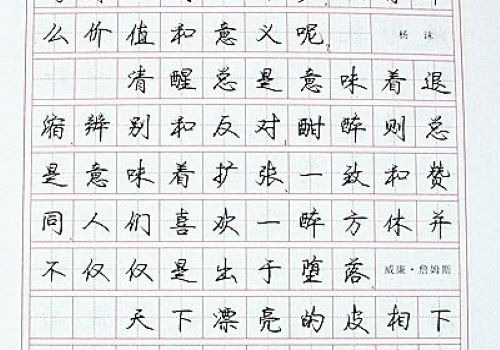 么价值和意义呢 杨沫
清醒总是意味着退
缩辨别和反对酣醉则总
是意味着扩张一致和赞
同人们喜欢一醉方休并
不仅仅是出于堕落 威廉·詹姆斯
天下漂亮的皮相下